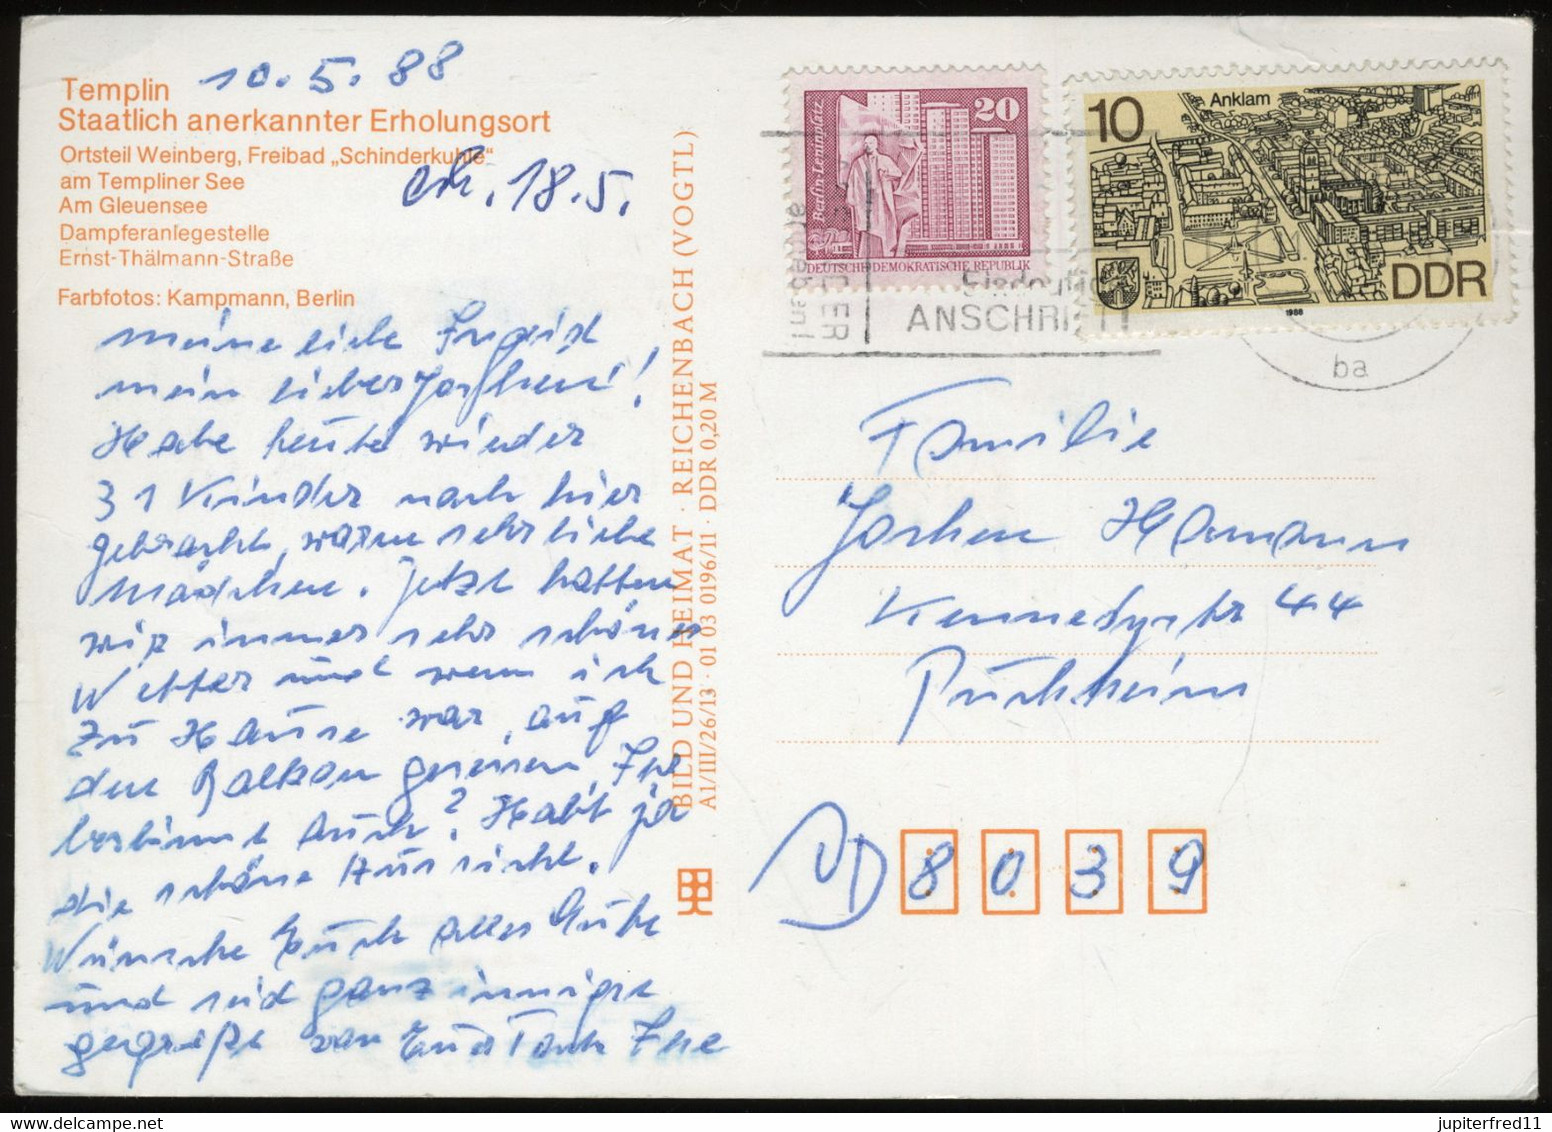 Templin 10.5.88
Staatlich anerkannter Erholungsort
Ortsteil Weinberg, Freibad „Schinderkuhle“
am Templiner See
Am Gleuensee
Dampferanlegestelle
Ernst-Thälmann-Straße
Farbfotos: Kampmann, Berlin
18.5.
meine liebe Ingrid,
mein lieber Jochen!
Habe heute wieder
31 Kinder nach hier
gebracht, waren sehr liebe
Mädchen. Jetzt hatten
wir immer sehr schönes
Wetter und wenn ich
zu Hause war, auf
den Balkon gesessen, Ihr
bestimmt auch? Habt ja
die schöne Aussicht.
Wünsche Euch alles Gute
und seid ganz innigst
gegrüßt von Eurer Tante Ilse
BILD UND HEIMAT · REICHENBACH (VOGTL)
A1/III/26/13 · 01 03 0196/11 · DDR 0,20 M
20
Berlin-Leninplatz
DEUTSCHE DEMOKRATISCHE REPUBLIK
10
Anklam
DDR
1988
ANSCHRIFT
ba
Familie
Jochen Hamann
Kennedystr 44
Puchheim
D 8039
jupiterfred11